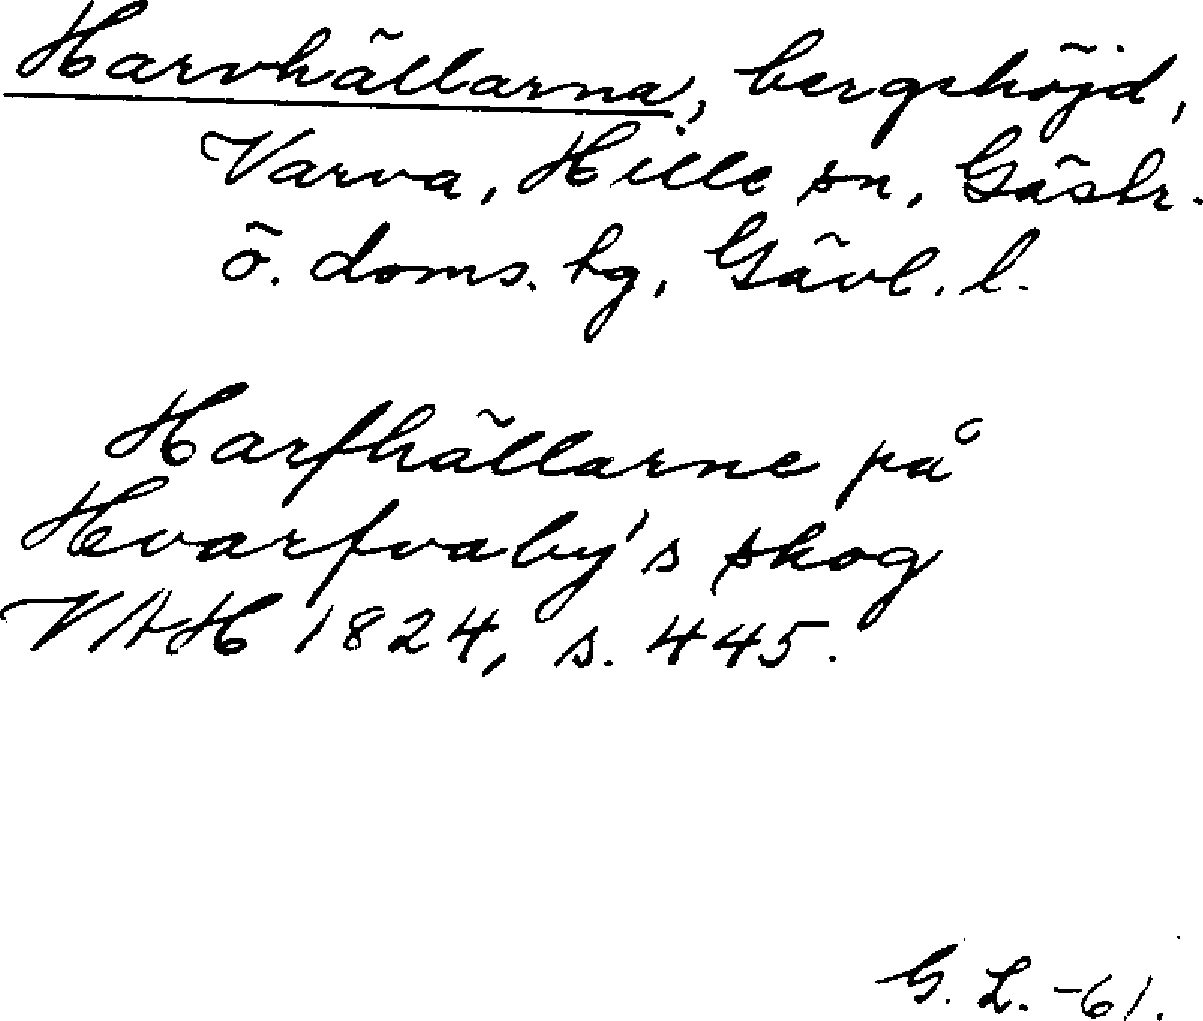 Harvhällarna, bergshöjd,
Varva, Hille sn, Gästr.
ö. doms. tg, Gävl. l.
Harfhällarne på
Hvarfvaby's skog
VAH 1824, s. 445.
G. L. -61.